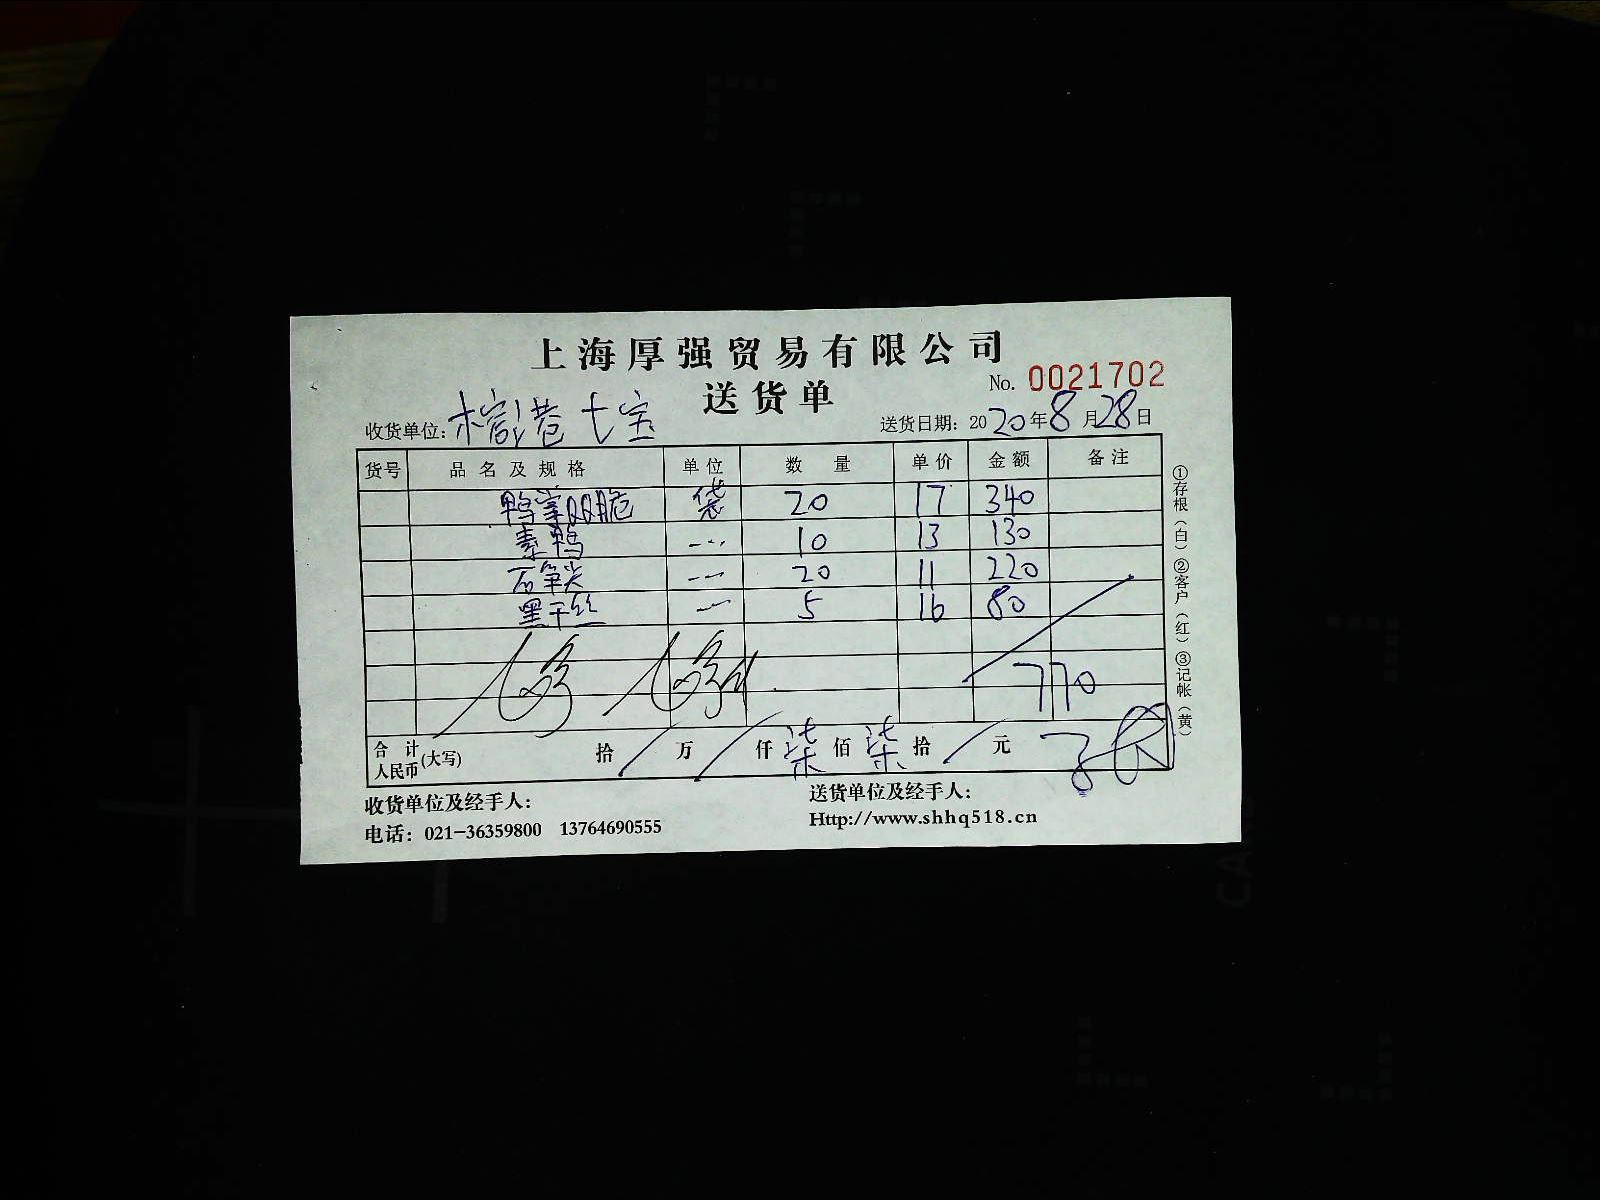 上海厚强贸易有限公司
送货单
No. 0021702
收货单位: 七宝
送货日期: 2020年8月28日
货号 品名及规格 单位 数量 单价 金额 备注
鸭掌双脆 袋 20 17 340
素鸭 10 13 130
石笋尖 20 11 220
黑干丝 5 16 80
770
合计人民币(大写) 拾 / 万 / 仟 柒 佰 柒 拾 / 元
收货单位及经手人:
送货单位及经手人:
电话: 021-36359800 13764690555
Http://www.shhq518.cn
①存根(白)②客户(红)③记帐(黄)